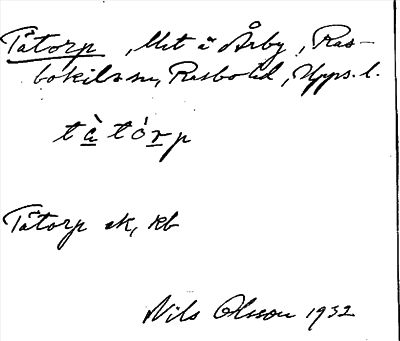 Tåtorp, lht i Årby, Ras-
bokils sn, Rasbo hd, Upps. l.
tà tórp
Tåtorp ek, kb
Nils Olsson 1932